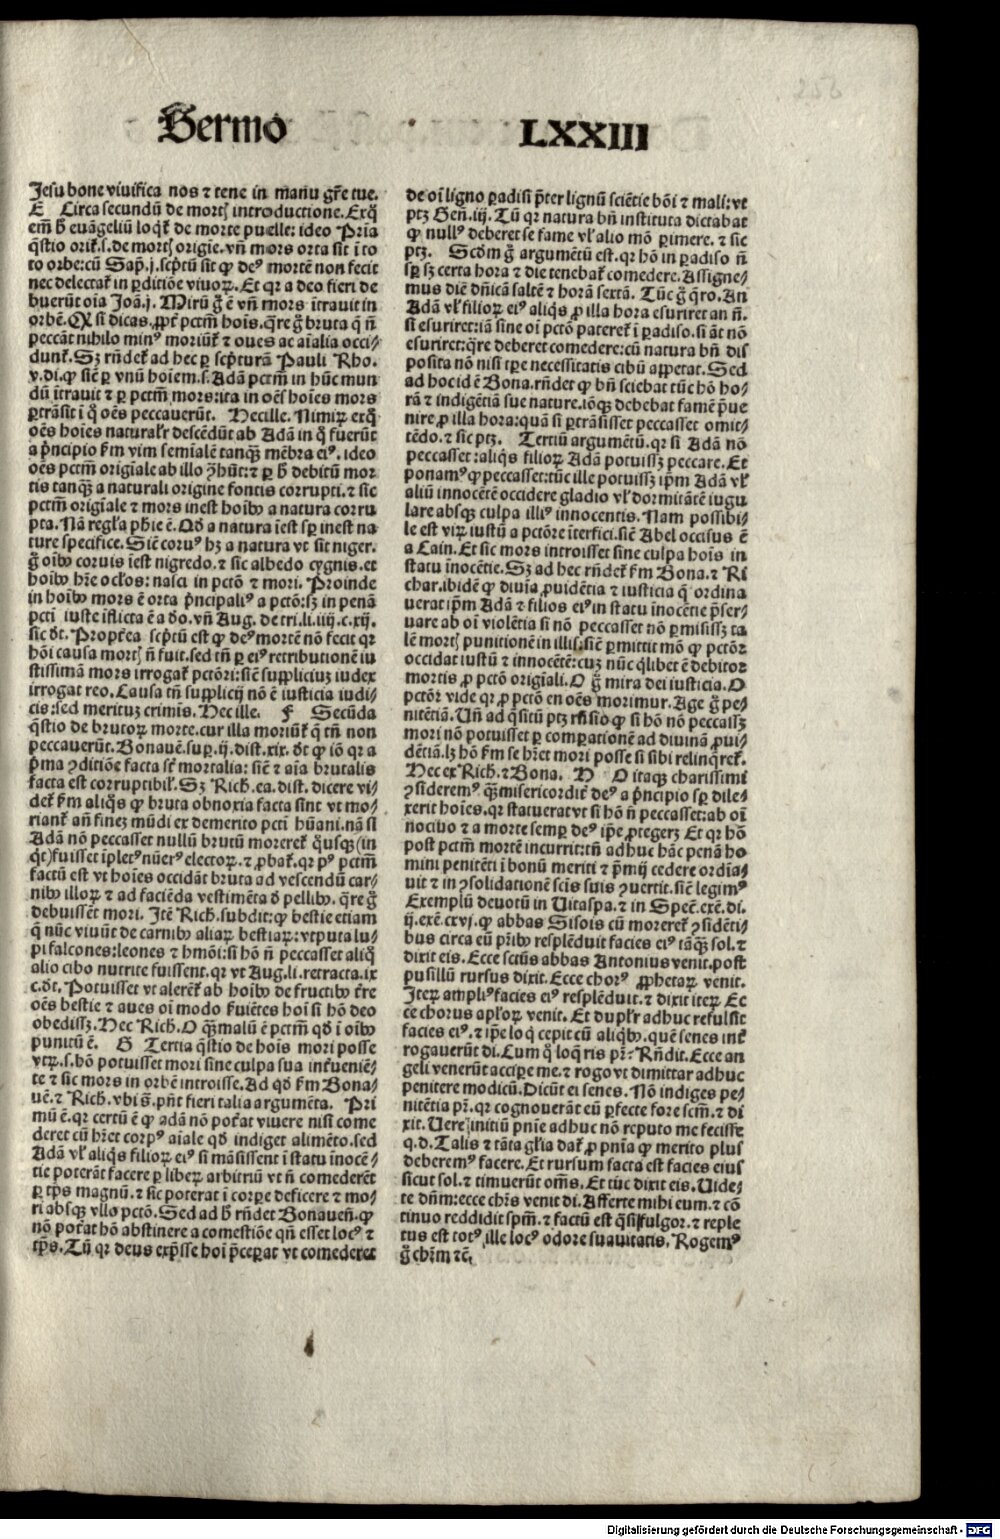 Sermo LXXIII
Jesu bone vivifica nos ⁊ tene in manu gr̄e tue.
E Circa secundū de mortꝭ introductione. Exq̇
em̄ ħ evāgeliū loqr̄ de morte puelle: ideo Pria
q̄stio orit̄.s.de mortꝭ origīe. vn̄ mors orta sit ī to
to orbe: cū Sap̄.j.scp̄tū sit ꝙ deꝰ mortē non fecit
nec delectat̄ in ꝑditiōe vivoꝝ. Et qꝛ a deo fieri de
buerūt oīa Joā.j. Mirū ḡ ē vn̄ mors ītravit in
orbē. Qꝫ si dicas. ꝓpt̄ pctm̄ hoīs. q̄re ḡ bruta q̄ n̄
peccāt nihilo minꝰ moriūt̄ ⁊ oves ac aīalia occi⸗
dunt̄. Sꝫ rn̄det̄ ad hec ꝑ scp̄turā Pauli Rho.
v.di.ꝙ sic̄ ꝑ vnū hoīem.s.Adā pctm̄ in hūc mun
dū ītravit ⁊ ꝑ pctm̄ mors: ita in oēs hoīes mors
ꝑtrāsit ī q̇ oēs peccaverūt. Hec ille. Nimiꝝ exq̇
oēs hoīes naturalr̄ descēdūt ab Adā in q̇ fuerūt
a p̄ncipio ẜm vim semialē tanqꝫ mēbra eiꝰ. ideo
oēs pctm̄ origīale ab illo ꝯhūt: ⁊ ꝑ ħ debitū mor
tis tanqꝫ a naturali origine fontis corrupti. ⁊ sic
pctm̄ origīale ⁊ mors inest hoībꝰ a natura corru
pta. Nā regl̄a phīe ē. Qd̄ a natura īest sꝑ inest na
ture specifice. Sic̄ corvꝰ hꝫ a natura vt sit niger.
ḡ oībꝰ corvis īest nigredo. ⁊ sic albedo cygnis. et
hoībꝰ hr̄e ocl̄os: nasci in pctō ⁊ mori. Proinde
in hoībꝰ mors ē orta p̄ncipaliꝰ a pctō: sꝫ in penā
pcti iuste īflicta ē a do. vn̄ Aug. de tri.li.iiij.c.xij.
sic dt̄. Propt̄ea scp̄tū est ꝙ deꝰ mortē nō fecit qꝛ
hoī causa mortꝭ n̄ fuit. sed tn̄ ꝑ eiꝰ retributionē iu
stissimā mors irrogat̄ pctōri: sic̄ suppliciuꝫ iudex
irrogat reo. Causa tn̄ supplicij nō ē iusticia iudi⸗
cis: sed merituꝫ crimīs. Hec ille. F Secūda
q̄stio de brutoꝝ morte. cur illa moriūt̄ q̄ tn̄ non
peccaverūt. Bonavē. suꝑ.ij.dist.xix. dt̄ ꝙ iō qꝛ a
p̄ma ꝯditiōe facta st̄ mortalia: sic̄ ⁊ aīa brutalis
facta est corruptibil̄. Sꝫ Rich. ea. dist. dicere vi⸗
det̄ ẜm aliq̄s ꝙ bruta obnoxia facta sint vt mo⸗
riant̄ an̄ fineꝫ mūdi ex demerito pcti hūani. nā si
Adā nō peccasset nullū brutū moreret̄ q̄usqꝫ (in
qt̄) fuisset īpletꝰ nūerꝰ electoꝝ. ⁊ ꝓbat̄. qꝛ pꝰ pctm̄
factū est vt hoīes occidāt bruta ad vescendū car⸗
nibꝰ illoꝝ ⁊ ad faciēda vestimēta d̄ pellibꝰ. q̄re ḡ
debuissēt mori. Itē Rich. subdit: ꝙ bestie etiam
q̄ nūc vivūt de carnibꝰ aliaꝝ bestiaꝝ: vtputa lu⸗
pi falcones: leones ⁊ hmōi: si hō n̄ peccasset aliq̇
alio cibo nutrite fuissent. qꝛ vt Aug.li.retracta.ix
c.dt̄. Potuisset vt aleret̄ ab hoībꝰ de fructibꝰ tr̄e
oēs bestie ⁊ aves oī modo ẜuiētes hoī si hō deo
obedissꝫ. Hec Rich. O q̄ꝫ malū ē pctm̄ qd̄ ī oībꝰ
punitū ē. G Tertia q̄stio de hoīs mori posse
vtꝝ.s.hō potuisset mori sine culpa sua inẜueniē⸗
te ⁊ sic mors in orbē introisse. Ad qd̄ ẜm Bona⸗
vē. ⁊ Rich. vbi s̄. pn̄t fieri talia argumēta. Pri
mū ē. qꝛ certū ē ꝙ adā nō pot̄at vivere nisi come
deret cū hr̄et corpꝰ aīale qd̄ indiget alimēto. sed
Adā vl̄ aliq̄s filioꝝ eiꝰ si māsissent ī statu īnocē⸗
tie poterāt facere ꝑ liberꝝ arbitriū vt n̄ comederēt
ꝑ tp̄s magnū. ⁊ sic poterat ī corꝑe deficere ⁊ mo⸗
ri absqꝫ vllo pctō. Sed ad ħ rn̄det Bonaven̄. ꝙ
nō pot̄at hō abstinere a comestiōe qn̄ esset locꝰ ⁊
tp̄s. Tū qꝛ deus exp̄sse hoī p̄ceꝑat vt comederet
de oī ligno ꝑadisi p̄ter lignū sciētie bōi ⁊ mali: vt
ptꝫ Gen̄.iij. Tū qꝛ natura bn̄ instituta dictabat
ꝙ nullꝰ deberet se fame vl̄ alio mō ꝑimere. ⁊ sic
ptꝫ. Scd̄m ḡ argumētū est. qꝛ hō in ꝑadiso n̄
sꝑ sꝫ certa hora ⁊ die tenebat̄ comedere. Assigne⸗
mus diē dn̄icā saltē ⁊ horā sextā. Tūc ḡ q̄ro. An
Adā vl̄ filioꝝ eiꝰ aliq̄s ꝓ illa hora esuriret an n̄.
si esuriret: iā sine oī pctō pateret̄ ī ꝑadiso. si āt nō
esuriret: q̄re deberet comedere: cū natura bn̄ dis
posita nō nisi tꝑe necessitatis cibū appetat. Sed
ad hoc id ē Bona. rn̄det ꝙ bn̄ sciebat tūc hō ho⸗
rā ⁊ indigētiā sue nature. iōqꝫ debebat famē p̄ve
nire ꝓ illa hora: quā si ꝑtrāsisset peccasset omit⸗
tēdo. ⁊ sic ptꝫ. Tertiū argumētū. qꝛ si Adā nō
peccasset: aliq̄s filioꝝ Adā potuissꝫ peccare. Et
ponamꝰ ꝙ peccasset: tūc ille potuissꝫ ip̄m Adā vl̄
aliū innocētē occidere gladio vl̄ dormitātē iugu
lare absqꝫ culpa illiꝰ innocentis. Nam possibi⸗
le est viꝝ iustū a pctōre īterfici. sic̄ Abel occisus ē
a Cain. Et sic mors introisset sine culpa hoīs in
statu īnocētie. Sꝫ ad hec rn̄det̄ ẜm Bona. ⁊ Ri
char. ibidē ꝙ divīa ꝓvidētia ⁊ iusticia q̄ ordina
verat ip̄m Adā ⁊ filios eiꝰ in statu īnocētie p̄ser⸗
vare ab oī violētia si nō peccasset nō ꝑmisissꝫ ta
lē mortꝭ punitionē in illis: sic̄ ꝑmittit mō ꝙ pctōr
occidat iustū ⁊ innocētē: cuꝫ nūc q̄libet ē debitor
mortis ꝓ pctō origīali. O ḡ mira dei iusticia. O
pctōr vide qꝛ ꝓ pctō en oēs morimur. Age ḡ pe⸗
nitētiā. Vn̄ ad q̄situ ptꝫ rn̄sio ꝙ si hō nō peccassꝫ
mori nō potuisset ꝑ comparationē ad divinā ꝓvi⸗
dētiā. lꝫ hō ẜm se hr̄et mori posse si sibi relinq̄ret̄.
Hec ex Rich. ⁊ Bona. H O itaqꝫ charissimi
ꝯsideremꝰ q̄ꝫ misericordit̄ deꝰ a p̄ncipio sꝑ dile⸗
xerit hoīes. qꝛ statuerat vt si hō n̄ peccasset: ab oī
nocivo ⁊ a morte semꝑ deꝰ ip̄e ꝓtegerꝫ Et qꝛ hō
post pctm̄ mortē incurrit: tn̄ adhuc hāc penā ho
mini penitēti ī bonū meriti ⁊ p̄mij cedere ordīa⸗
vit ⁊ in ꝯsolidationē scīs suis ꝯvertit. sic̄ legimꝰ
Exemplū devotū in Vitaspa. ⁊ in Spec̄.exē.di.
ij.exē.cxvj. ꝙ abbas Sisois cū moreret̄ ꝯsidēti⸗
bus circa eū pr̄ibꝰ resplēduit facies eiꝰ tāqꝫ sol. ⁊
dixit eis. Ecce sctūs abbas Antonius venit. post
pusillū rursus dixit. Ecce chorꝰ ꝓphetaꝝ venit.
Iteꝝ ampliꝰ facies eiꝰ resplēduit. ⁊ dixit iteꝝ Ec
ce chorus apl̄oꝝ venit. Et duplr̄ adhuc refulsit
facies eiꝰ. ⁊ ip̄e loq̇ cepit cū aliq̇bꝰ. quē senes int̄
rogaverūt di. Cum q̇ loq̄ris pr̄. Rn̄dit. Ecce an
geli venerūt acciꝑe me. ⁊ rogo vt dimittar adhuc
penitere modicū. Dicūt ei senes. Nō indiges pe⸗
nitētia pr̄. qꝛ cognoverāt eū ꝑfecte fore scm̄. ⁊ di
xit. Vere initiū pn̄ie adhuc nō reputo me fecisse
q.d. Talis ⁊ tāta gl̄ia dat̄ ꝓ pn̄ia ꝙ merito plus
deberemꝰ facere. Et rursum facta est facies eius
sicut sol. ⁊ timuerūt om̄s. Et tūc dixit eis. Vide⸗
te dn̄m: ecce chr̄s venit di. Afferte mihi eum. ⁊ cō
tinuo reddidit spm̄. ⁊ factū est q̄si fulgor. ⁊ reple
tus est totꝰ ille locꝰ odore suavitatis. Rogemꝰ
ḡ chr̄m ⁊c̄.
Digitalisierung gefördert durch die Deutsche Forschungsgemeinschaft - DFG